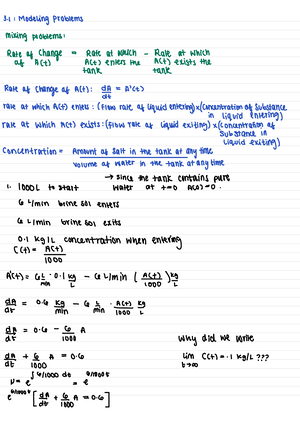 3.2 : Modeling Problems
mixing problems:
Rate of Change of A(t) = Rate at which A(t) enters the tank - Rate at which A(t) exists the tank
Rate of Change of A(t): dA/dt = A'(t)
rate at which A(t) enters : (flow rate of liquid entering) x (Concentration of Substance in liquid entering)
rate at which A(t) exists : (flow rate of liquid exiting) x (concentration of Substance in liquid exiting)
Concentration = Amount of salt in the tank at any time / volume of water in the tank at any time
→ since the tank contains pure water at t=0 A(0)=0.
1. 1000 L to start
6 L/min brine sol enters
6 L/min brine sol exits
0.1 kg/L concentration when entering
C(t) = A(t)/1000
A'(t) = 6 L/min · 0.1 kg/L - 6 L/min (A(t)/1000) kg/L
dA/dt = 0.6 kg/min - 6 L/min · A(t)/1000 kg/L
dA/dt = 0.6 - 6/1000 A
Why did we write
dA/dt + 6/1000 A = 0.6
lim t→∞ C(t) = .1 kg/L ???
μ = e^∫6/1000 dt = e^6/1000t
e^6/1000t [dA/dt + 6/1000 A = 0.6]